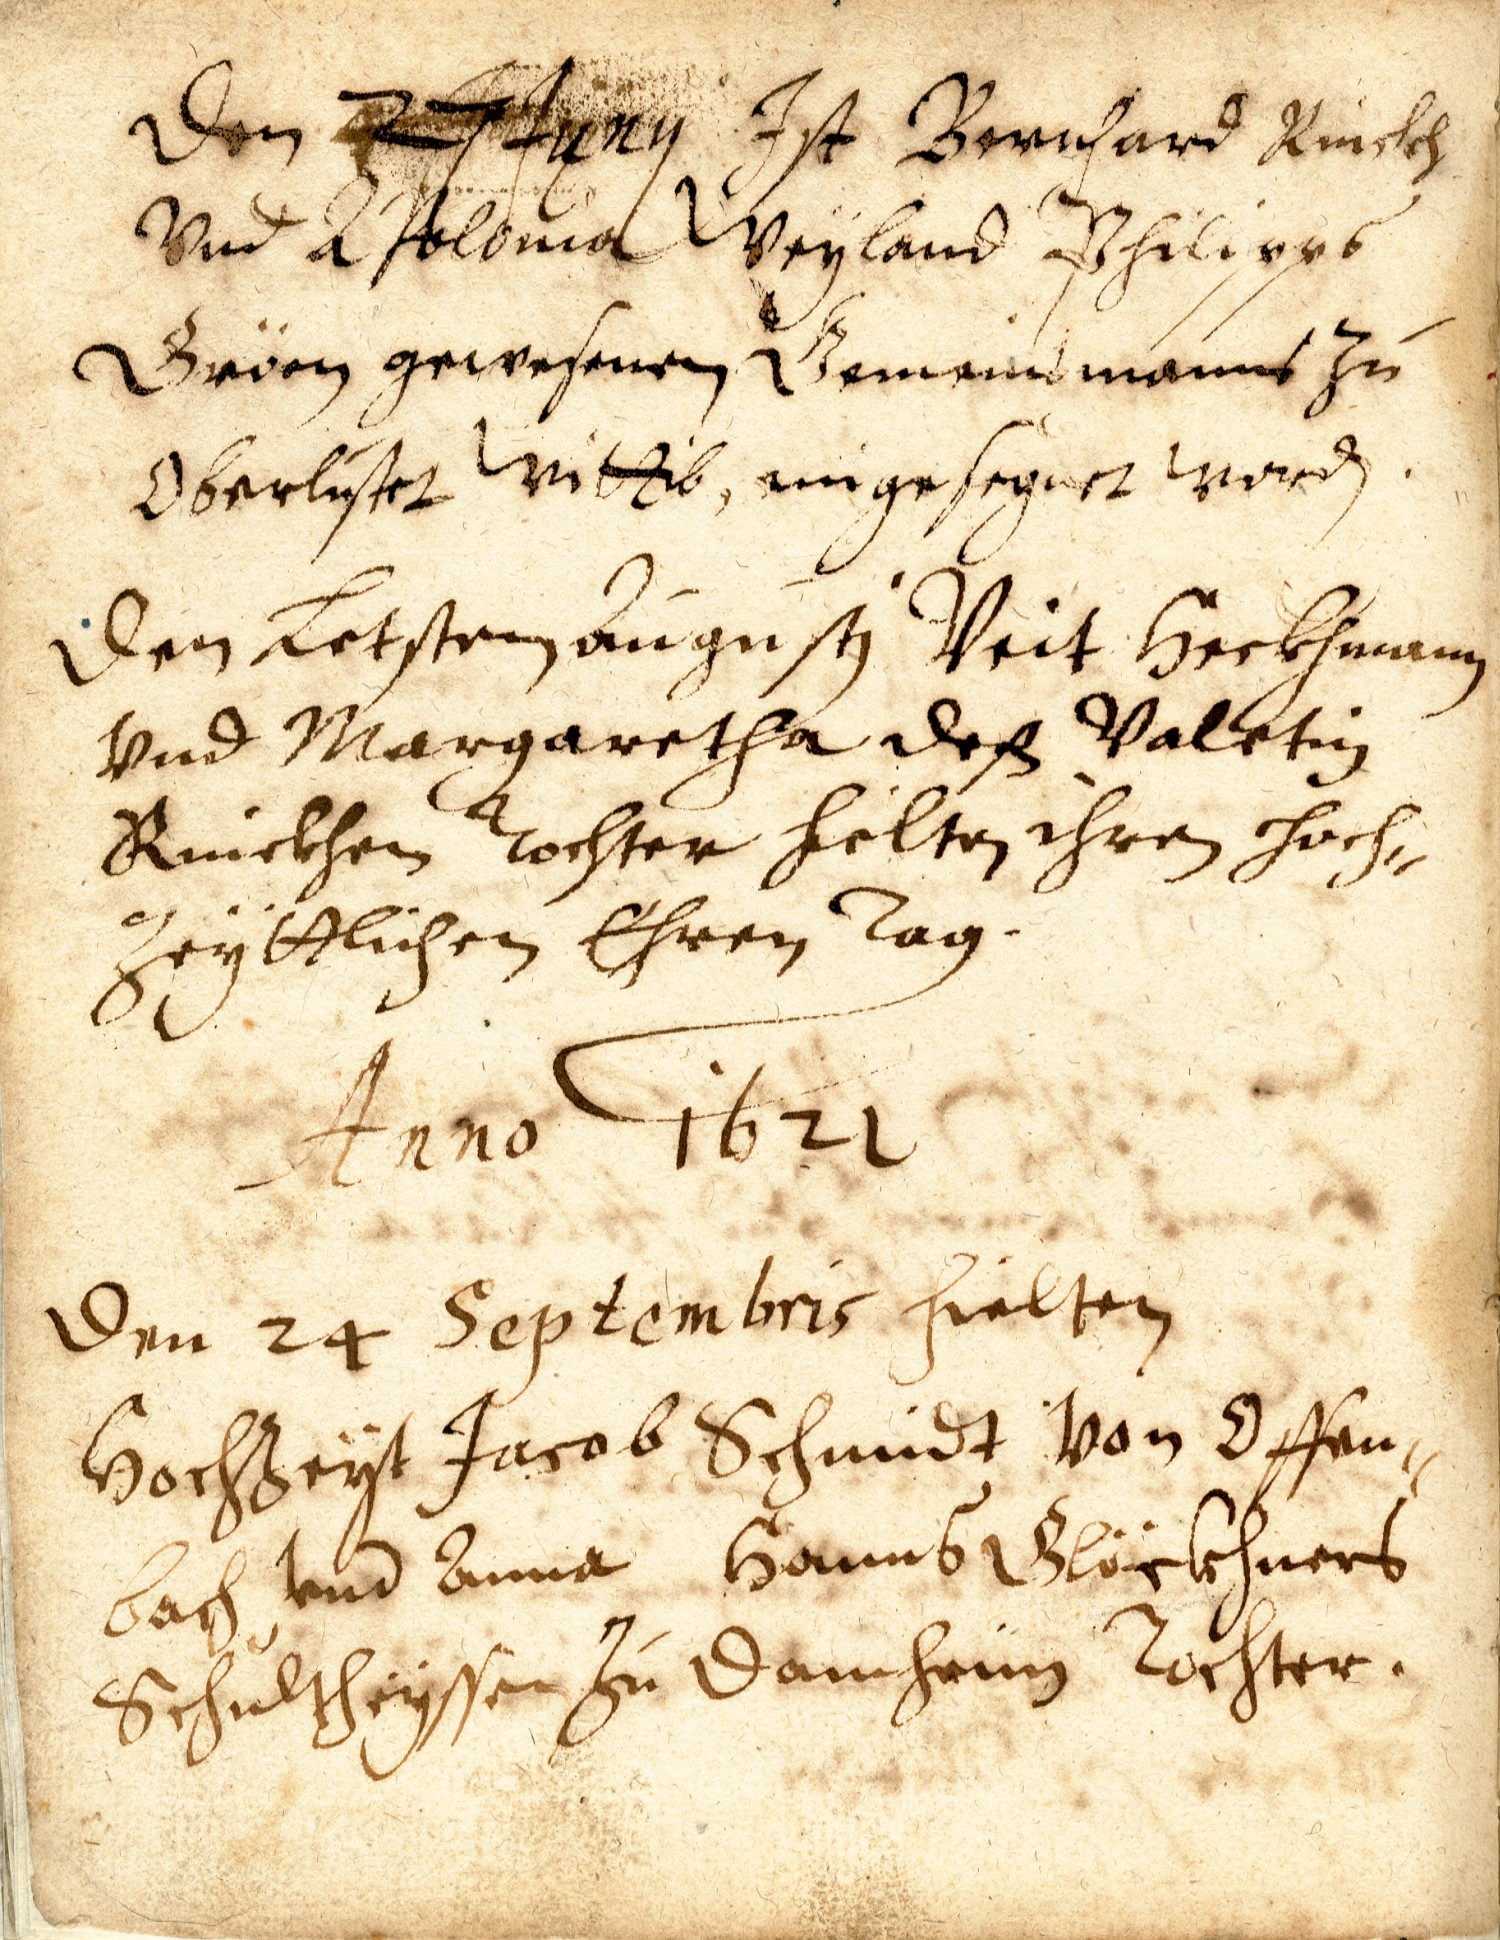 Den 27 Juny Ist Bernhard Rückh
Vnd Apolonia Weÿland Philipps
Gröen gewesenen Gemeinsmanns zu
Oberlustet Wittib, eingesegnet word.
Den Letsten Augusty Veit Heckhmann
vnd Margaretha deß Valetin
Rückhen Tochter hielten ihren hoch„
Zeÿttlichen Ehren Tag.
Anno 1621
Den 24 Septembris hielten
Hochzeyt Jacob Schmidt von Offen„
bach, vnd Anna Hanns Glöckhners
Schultheÿssen zu Damheim Tochter.